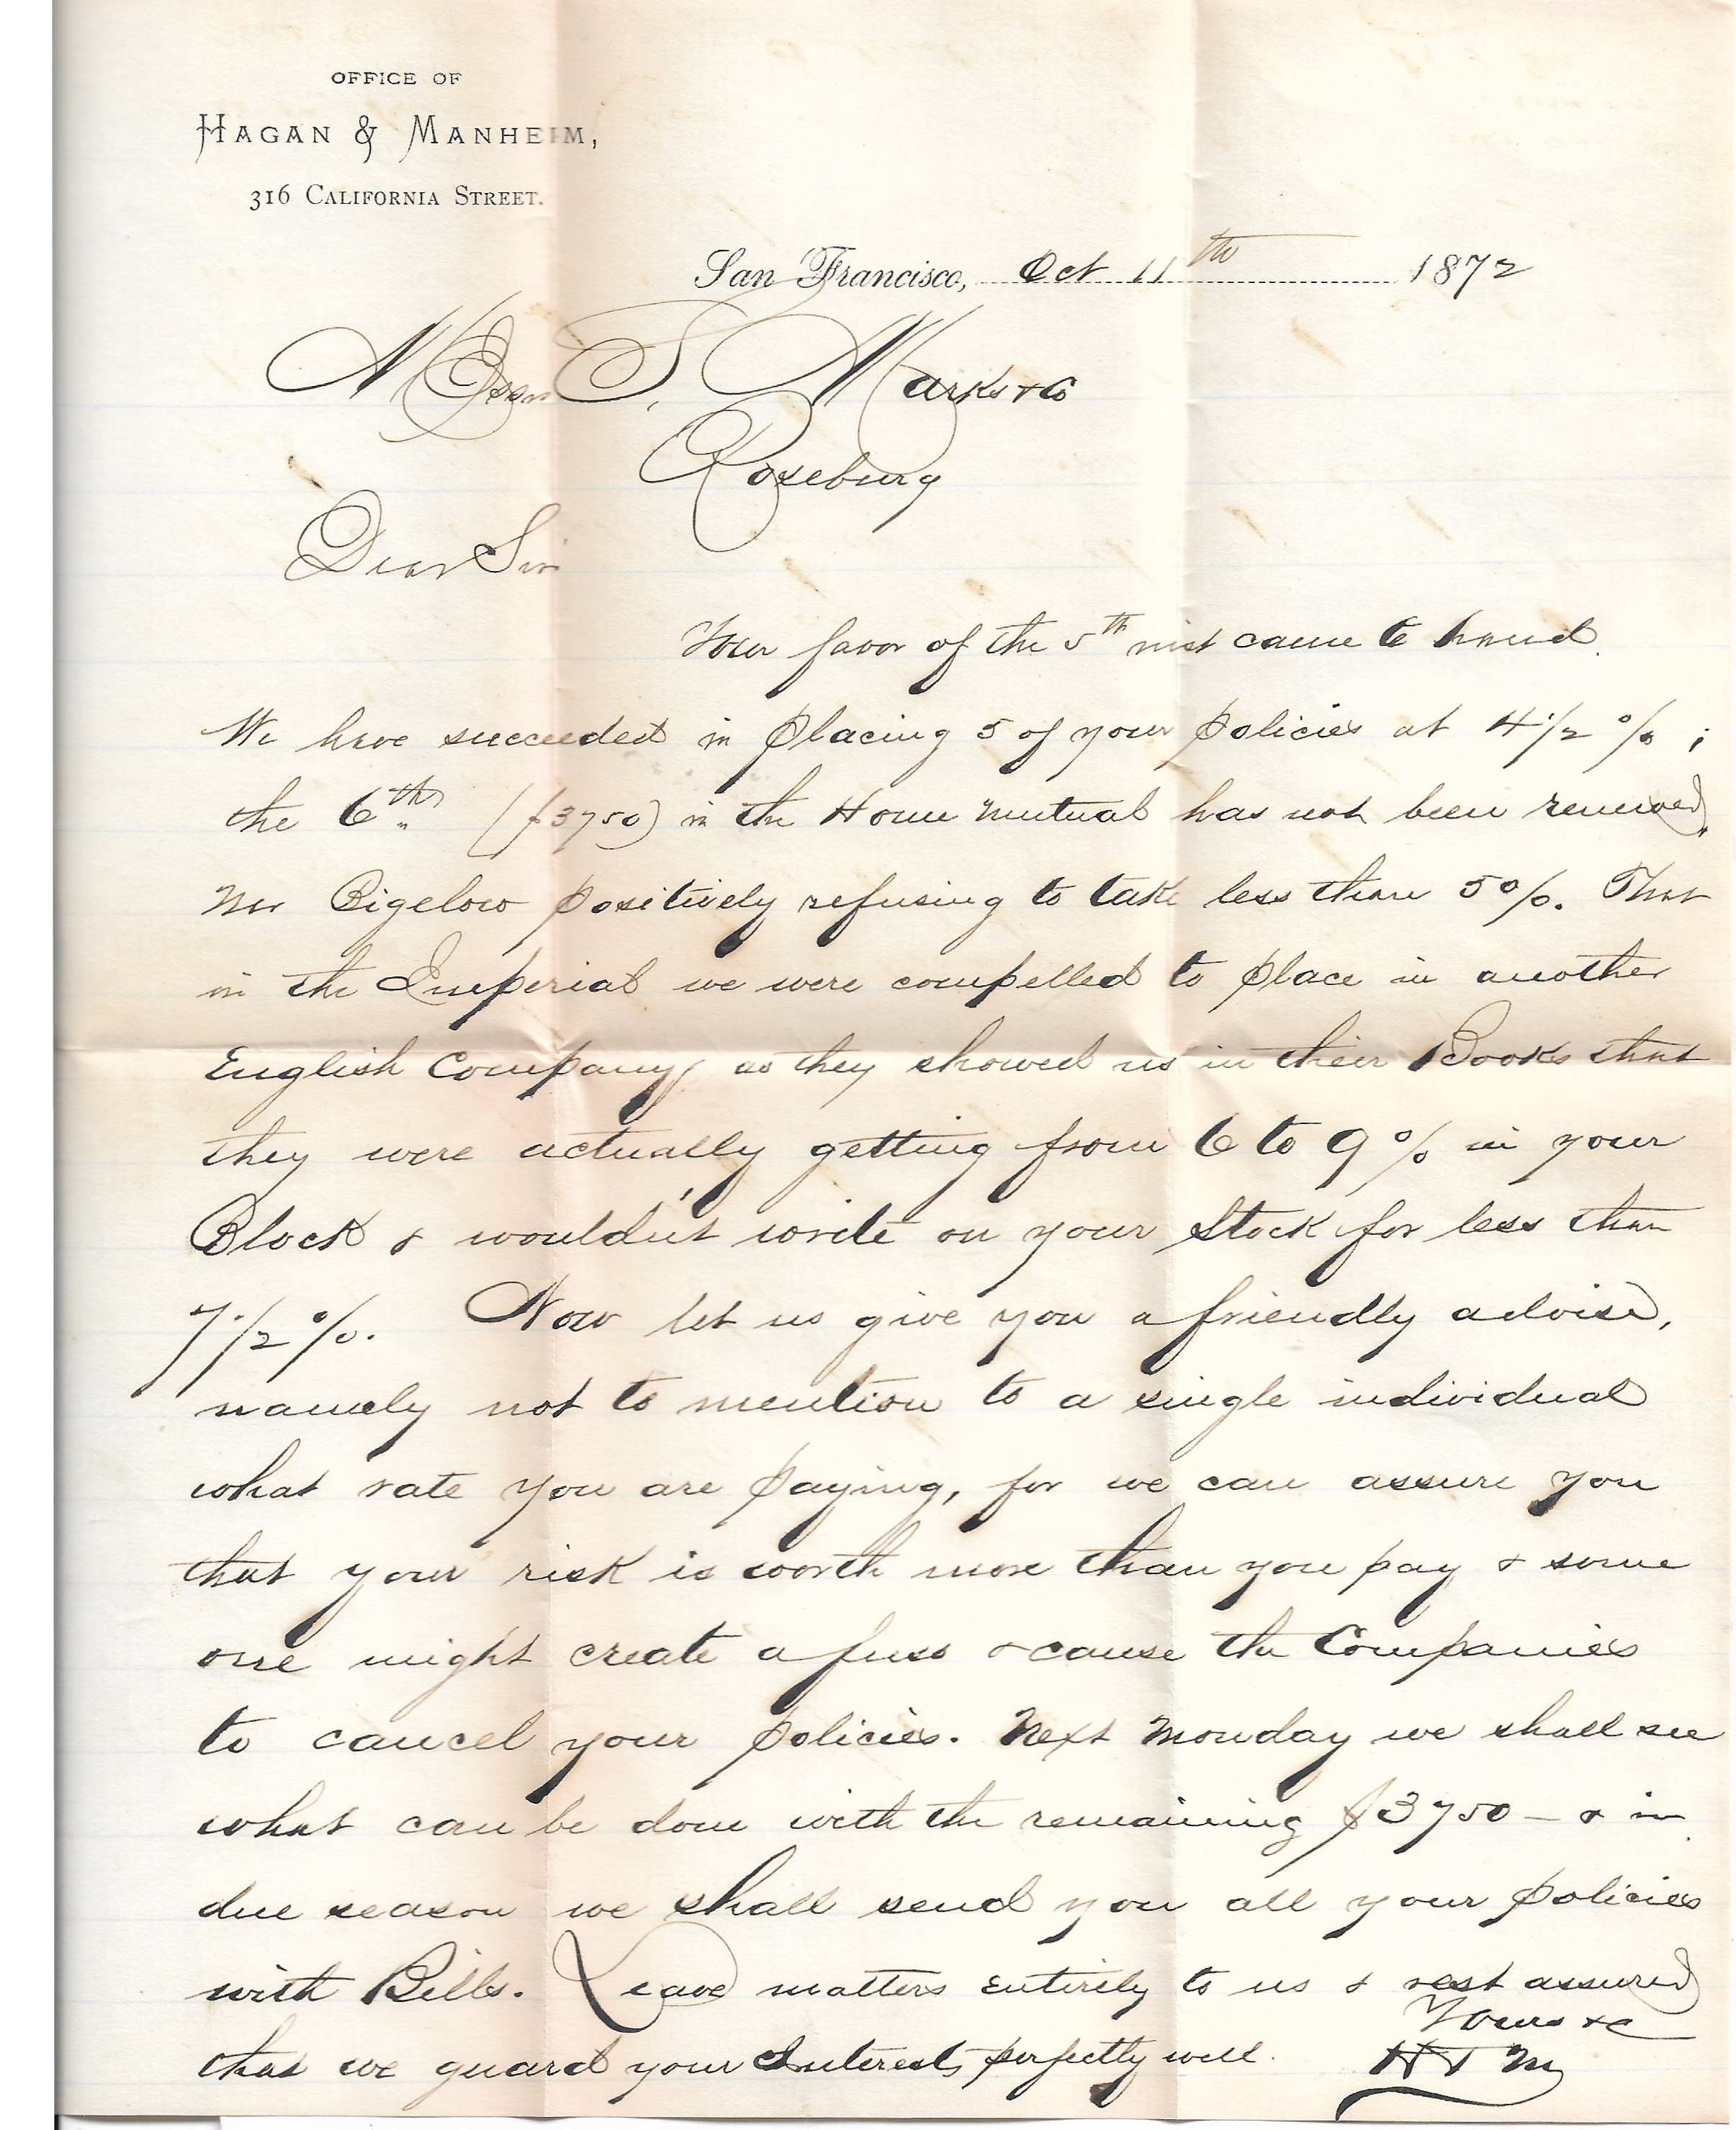 OFFICE OF
HAGAN & MANHEIM,
316 CALIFORNIA STREET.
San Francisco, Oct 11th 1872
Messrs S. Marks & Co
Roseburg
Dear Sir
Your favor of the 5th inst came to hand.
We have succeeded in placing 5 of your policies at 4 1/2 % ;
the 6th ($3750) in the Home Mutual has not been renewed,
Mr Bigelow positively refusing to take less than 5%. That
in the Imperial we were compelled to place in another
English Company, as they showed us in their Books that
they were actually getting from 6 to 9% in your
Block & wouldn't write on your Stock for less than
7 1/2 %. Now let us give you a friendly advise,
namely not to mention to a single individual
what rate you are paying, for we can assure you
that your risk is worth more than you pay & some
one might create a fuss & cause the Companies
to cancel your policies. Next Monday we shall see
what can be done with the remaining $3750 – & in
due season we shall send you all your policies
with Bills. Leave matters entirely to us & rest assured
that we guard your Interests perfectly well.
Yours &c
H & M